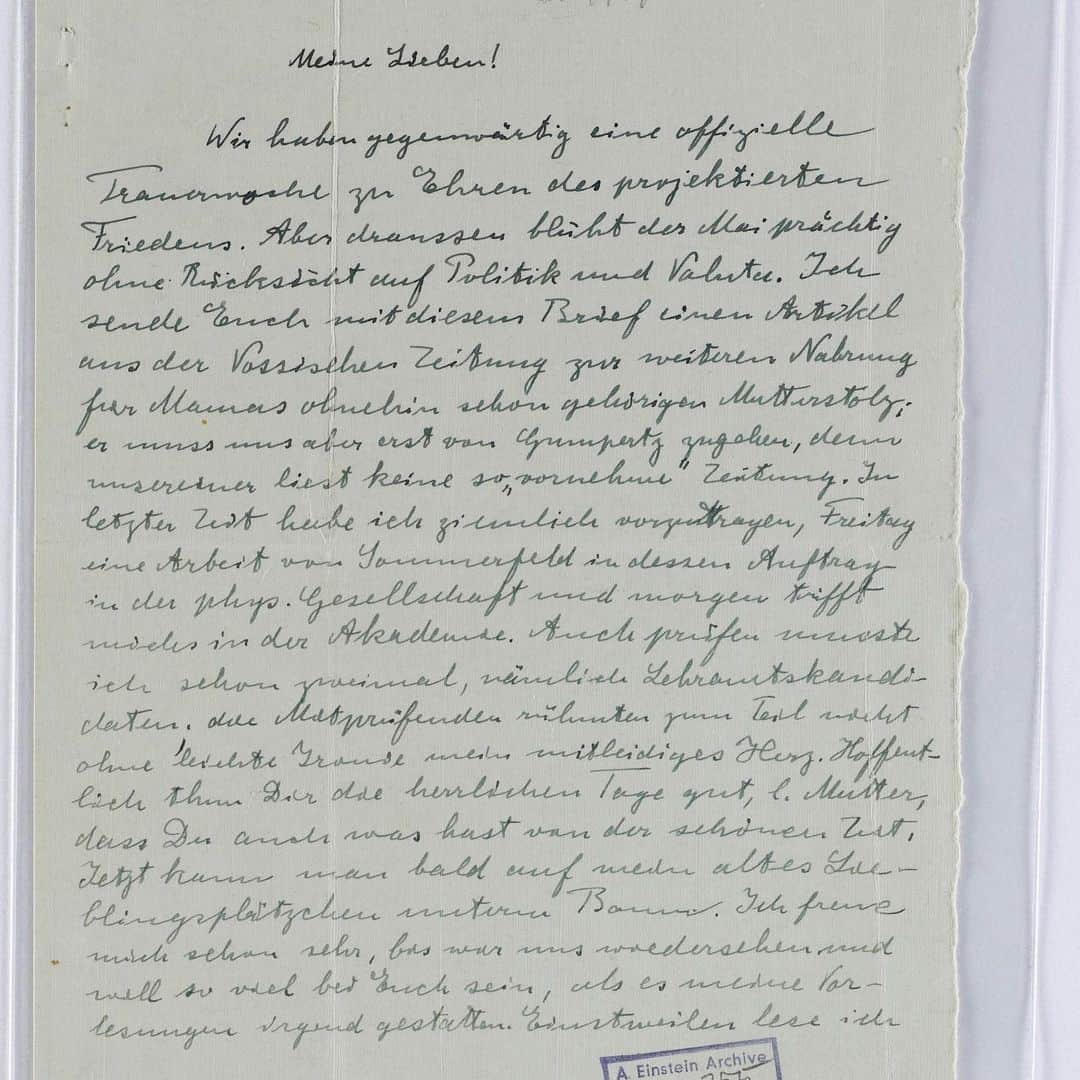 Meine Lieben!
Wir haben gegenwärtig eine offizielle
Trauerwoche zu Ehren des projektierten
Friedens. Aber draussen blüht der Mai prächtig
ohne Rücksicht auf Politik und Valuta. Ich
sende Euch mit diesem Brief einen Artikel
aus der Vossischen Zeitung zur weiteren Nahrung
für Mamas ohnehin schon gehörigen Mutterstolz;
er muss uns aber erst von Gumpertz zugehen, denn
unsereiner liest keine so „vornehme" Zeitung. In
letzter Zeit habe ich ziemlich vorzutragen, Freitag
eine Arbeit von Sommerfeld in dessen Auftrag
in der phys. Gesellschaft und morgen trifft
michs in der Akademie. Auch prüfen musste
ich schon zweimal, nämlich Lehramtskandi-
daten. die Mitprüfenden rühmten zum Teil nicht
ohne leichte Ironie mein mitleidiges Herz. Hoffent-
lich thun Dir die herrlichen Tage gut, l. Mutter,
dass Du auch was hast von der schönen Zeit.
Jetzt kann man bald auf mein altes Lie-
blingsplätzchen unterm Baum. Ich freue
mich schon sehr, bis wir uns wiedersehen und
will so viel bei Euch sein, als es meine Vor-
lesungen irgend gestatten. Einstweilen lese ich
A. Einstein Archive